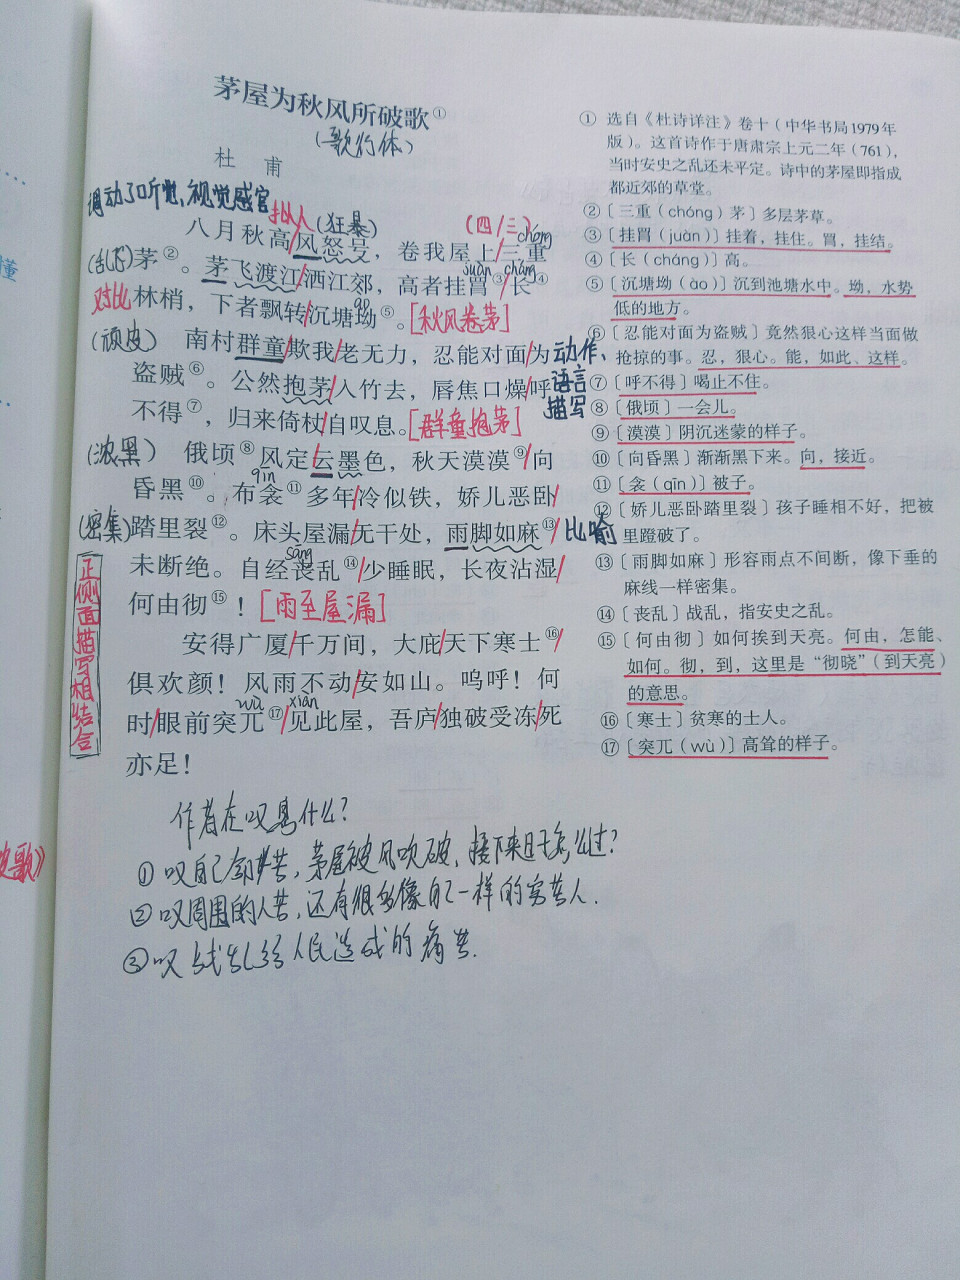 茅屋为秋风所破歌①
(歌行体)
杜 甫
调动了听觉、视觉感官
拟人
(狂暴)
(四/三)
chóng
八月秋高/风怒号，卷我屋上/三重
(乱飞)
茅②。茅飞渡江/洒江郊，高者挂罥③/长④
juàn
cháng
对比
林梢，下者飘转/沉塘坳⑤。[秋风卷茅]
ào
(顽皮)
南村群童/欺我/老无力，忍能对面/为
动作、
语言
描写
盗贼⑥。公然抱茅/入竹去，唇焦口燥/呼
不得⑦，归来倚杖/自叹息。[群童抱茅]
(浓黑)
俄顷⑧风定/云墨色，秋天漠漠⑨/向
qīn
昏黑⑩。布衾⑪多年/冷似铁，娇儿恶卧/
(密集)
踏里裂⑫。床头屋漏/无干处，雨脚如麻⑬/
比喻
sāng
未断绝。自经丧乱⑭/少睡眠，长夜沾湿/
何由彻⑮！[雨至屋漏]
正侧面描写相结合
安得广厦/千万间，大庇/天下寒士⑯/
俱欢颜！风雨不动/安如山。呜呼！何
wù
xiàn
时/眼前突兀⑰/见此屋，吾庐/独破受冻/死
亦足！
作者在叹息什么?
①叹自己命苦，茅屋被风吹破，接下来日子怎么过?
②叹周围的人苦，还有很多像自己一样的穷苦人.
③叹战乱给人民造成的痛苦.
① 选自《杜诗详注》卷十（中华书局1979年
版）。这首诗作于唐肃宗上元二年（761），
当时安史之乱还未平定。诗中的茅屋即指成
都近郊的草堂。
②〔三重（chóng）茅〕多层茅草。
③〔挂罥（juàn）〕挂着，挂住。罥，挂结。
④〔长（cháng）〕高。
⑤〔沉塘坳（ào）〕沉到池塘水中。坳，水势
低的地方。
⑥〔忍能对面为盗贼〕竟然狠心这样当面做
抢掠的事。忍，狠心。能，如此、这样。
⑦〔呼不得〕喝止不住。
⑧〔俄顷〕一会儿。
⑨〔漠漠〕阴沉迷蒙的样子。
⑩〔向昏黑〕渐渐黑下来。向，接近。
⑪〔衾（qīn）〕被子。
⑫〔娇儿恶卧踏里裂〕孩子睡相不好，把被
里蹬破了。
⑬〔雨脚如麻〕形容雨点不间断，像下垂的
麻线一样密集。
⑭〔丧乱〕战乱，指安史之乱。
⑮〔何由彻〕如何挨到天亮。何由，怎能、
如何。彻，到，这里是“彻晓”（到天亮）
的意思。
⑯〔寒士〕贫寒的士人。
⑰〔突兀（wù）〕高耸的样子。
懂
破歌》